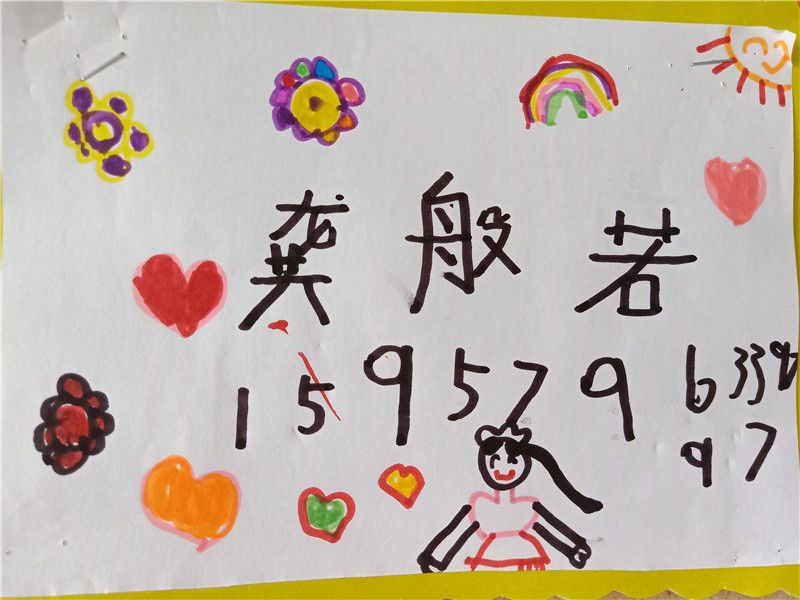 龚般若
159579633
97